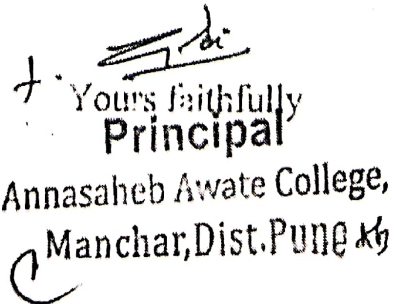 Yours faithfully
Principal
Annasaheb Awate College,
Manchar,Dist.Pune